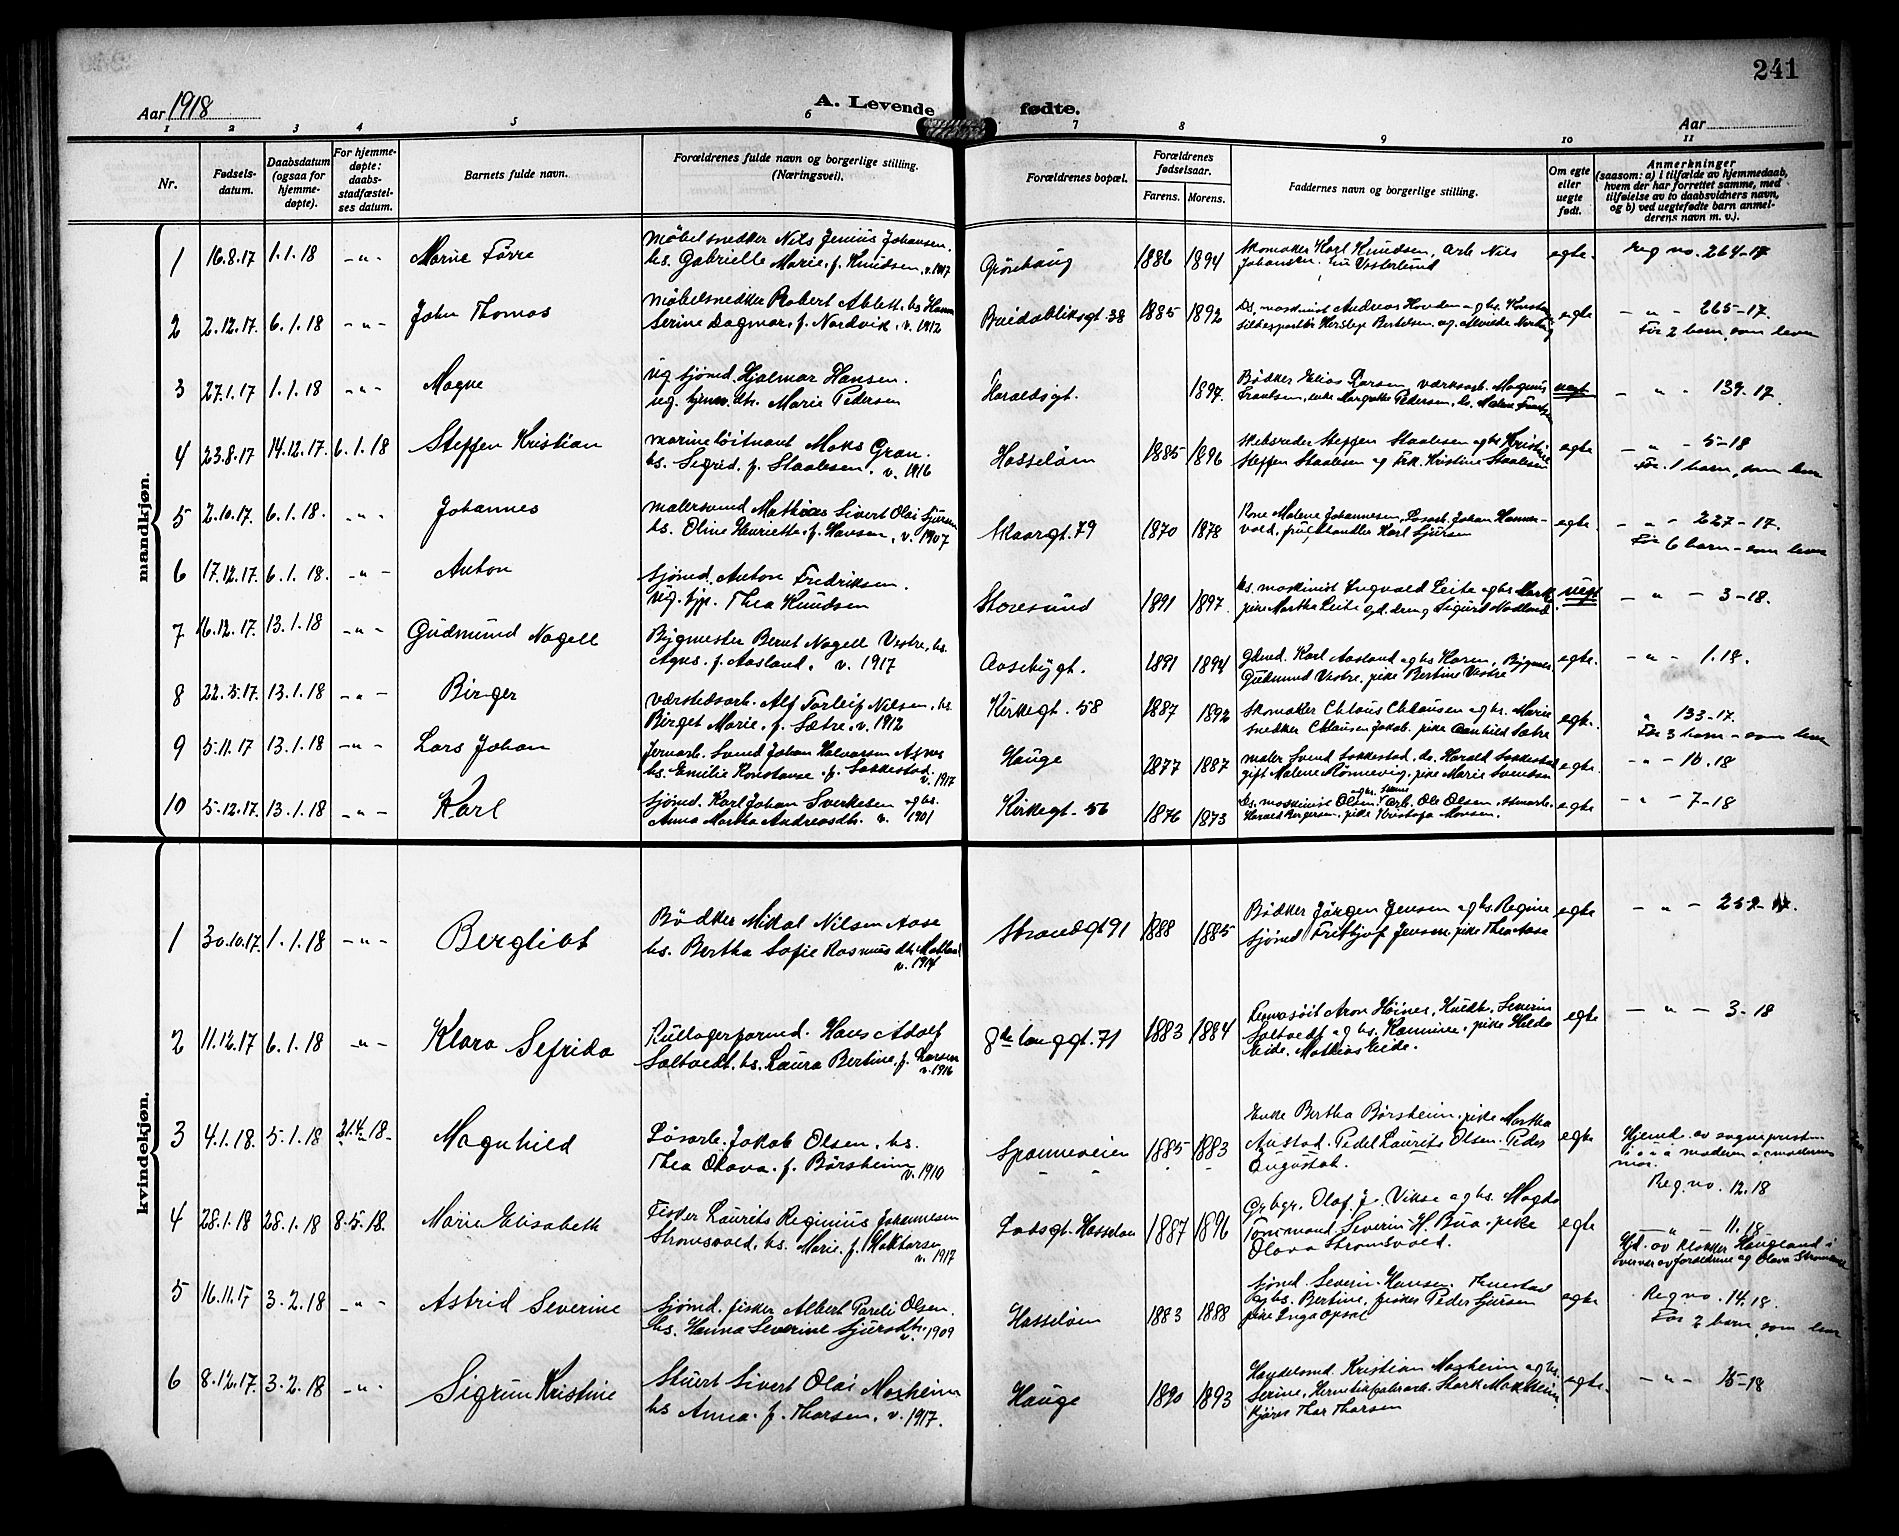 241
Aar 1918
A. Levende fødte.
Aar
1 2 3 4 5 6 7 8 9 10 11
Nr.
Fødsels-
datum.
Daabsdatum
(ogsaa for
hjemme-
døpte).
For hjemme-
døpte:
daabs-
stadfæstel-
ses datum.
Barnets fulde navn.
Forældrenes fulde navn og borgerlige stilling.
(Næringsvei).
Forældrenes bopæl.
Forældrenes
fødselsaar.
Farens. Morens.
Faddernes navn og borgerlige stilling.
Om egte
eller
uegte
født.
Anmerkninger
(saasom: a) i tilfælde av hjemmedaab,
hvem der har forrettet samme, med
tilføielse av to daabsvidners navn,
og b) ved uegtefødte barn anmel-
derens navn m. v.).
mandkjøn.
1 16.8.17 1.1.18 -"- Marie Førre
Møbelsnedker Nils Jenius Johansen,
hs. Gabrielle Marie, f. Knudsen, v. 1917
Grønhaug 1886 1894
Skomaker Karl Knudsen, Arb. Nils
Johansen
egte. Reg no. 264-17
2 2.12.17. 6.1.18 -"- John Thomas
Møbelsnedker Robert Ablett, hs Hanna
Serine Dagmar, f. Nordvik, v. 1912
Breidabliksgt. 38 1885 1892
Ds. maskinist Andreas Hovden og hs.
egte -"- 265-17.
Før 2 barn, som lever
3 27.1.17 1.1.18 -"- Magne
Ug sjömd. Hjalmar Hansen.
ug. Marie Pedersen
Haraldsgt. 1897.
Bødker Elias Larsen, værksarb. Magnus
uegt -"- 139-17.
4 23.8.17 14.12.17. 6.1.18 Steffen Kristian
Marineløitnant Maks Gran.
hs. Sigrid, f. Staalesen, v. 1916
Hasseløen 1885 1896
Skibsreder Steffen Staalesen og hs Kristine
Steffen Staalesen og Frk. Kristine Staalesen
egte -"- 5-18
Før 1 barn, som lever
5 2.10.17. 6.1.18. -"- Johannes
Malersvend Mathias Sivert Olai Sjursen
hs. Oline Henriette, f. Hansen, v. 1907
Skaargt. 79 1870 1878
Kone Malene Johannesen, Løsarb. Johan Hammer-
vold, frugthandler Karl Sjursen
egte. -"- 227-17.
Før 6 barn - som lever
6 17.12.17. 6.1.18. -"- Anton
Sjömd. Anton Fredriksen.
ug. tjp. Thea Knudsen
Storesund 1891 1897.
Ds. maskinist Ingvald Leite og hs
pike Martha Leite gd.dreng Sigurd Nodland
uegt -"- 3-18.
7 16.12.17. 13.1.18 -"- Gudmund Nagell
Bygmester Bernt Nagell Vestre, hs.
Agnes, f. Aasland, v. 1917
Aasebygt. 1891 1894
Gdmd. Karl Aasland og hs Karen, Bygmes
Gudmund Vestre, pike Bertine Vestre
egte. -"- 1.18.
8 22.5.17. 13.1.18 -"- Birger
Værstedsarb. Alf Torleif Nilsen, hs.
Birget Marie, f. Sætre, v. 1912
Kirkegt. 58 1887 1892
Skomaker Claus Clausen og hs. Marie
snedker Clausen Jakob. pike Sætre
egte. " 133-17.
Før 3 barn - som lever
9 5.11.17 13.1.18 -"- Lars Johan
Jernarb. Svend Johan Halvorsen
hs. Emilie Konstanse, f. Sakkestad. v. 1917
Hauge 1877 1887
Maler Svend Sakkestad, do. Harald Sakkestad
gift Malene Rönnevig, pike Marie Svendsen
egte. -"- 10.18
10 5.12.17. 13.1.18 -"- Karl
Sjömd. Karl Johan Sverkesen og hs.
Anna Martha Andreasdtr. v. 1901
Kirkegt. 56 1876 1873
Ds. maskinist Olsen, Arb. Ole Olsen, stuarb.
Harald Bergersen, pike Kristofa Monsen.
egte -"- 7-18
kvindekjøn.
1 30.10.17. 1.1.18 -"- Bergliot
Bödker Mikal Nilsen Aase
hs. Bertha Sofie Rasmusdtr. v. 1914
Strandgt 91 1888 1885
Bödker Jörgen Jensen og hs. Regine
Sjömd Fritjof Jensen, pike Thea Aase
egte -"-
2 11.12.17 6.1.18 -"- Klara Sefrida
Kullagerformd. Hans Adolf
Saltvedt, hs. Laura Bertine, f. Larsen v. 1916
8de langgt. 71 1883 1884
Aron Höines, Severin
Saltvedt og hs. pike Hilda
Eide, Mathias Eide.
egte -"- 3-18
3 4.1.18. 5.1.18 21.4.18. Magnhild
Løsarb. Jakob Olsen, hs.
Thea Olava, f. Børsheim v. 1910
Spanneveien 1885 1883
Enke Bertha Børsheim, pike Martha
Austad. Peder Laurits Olsen. Peder
Augustad.
egte Hjemd. av sogneprest
mor. Reg. no. 12.18
4 28.1.18 28.1.18 8.5.18. Marie Elisabeth
Fisker Laurits Reginius Johannesen
Stromsvold, hs. Marie, f. v. 1917
Losgt. Hasseløen 1887 1896
Grbgr. Olaf J. Vikse og hs. Magda
Tömmermand Severin H. Bua. pike
Olava Stromsvold.
egte -"- 11.18
Hjd. av Klokker Haugland i
overvær av forældrene og Olava Stromsvold
5 16.11.17 3.2.18 -"- Astrid Severine
Sjömd. fisker Albert Pareli Olsen.
hs. Hanna Severine Sjursdtr. v. 1909
Hasseløen 1883 1888
Sjömd. Severin Hansen
og hs. Bertine, fisker Peder Sjursen
pike Inga Opsal
egte Reg no. 14.18.
Før 2 barn, som lever
6 8.12.17. 3.2.18 -"- Sigrun Kristine
Stuert Sivert Olai Moxheim
hs Anna, f. Thorsen, v. 1917.
Hauge 1890 1893
Kristian Moxheim og hs.
Serine, Hermetikfabrikarb.
Thor Thorsen
egte. -"- 15-18